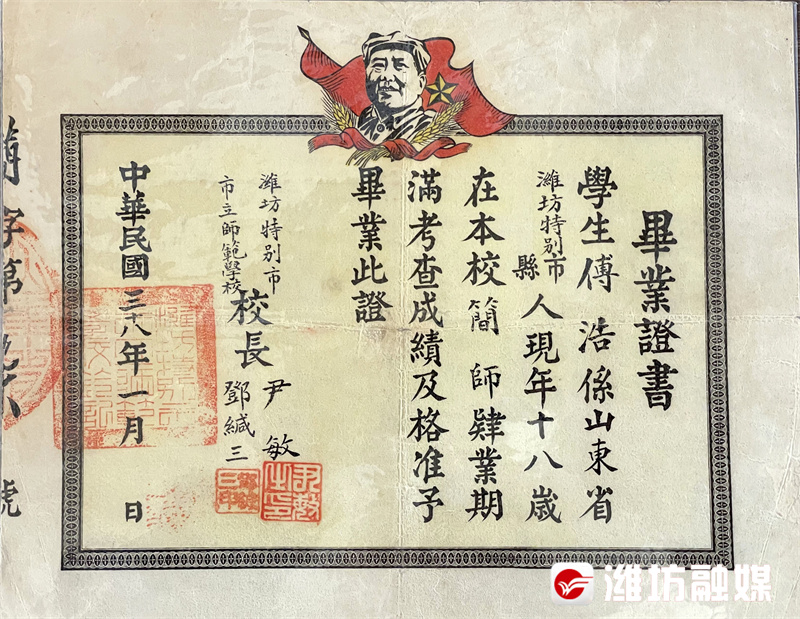 畢業證書
學生傅浩係山東省
濰坊特别市
縣
人現年十八歲
在本校簡師肄業期
滿考查成績及格准予
畢業此證
濰坊特别市
市立師範學校
校長
尹敏
鄧緘三
中華民國三十八年一月 日
字第
號
濰坊融媒